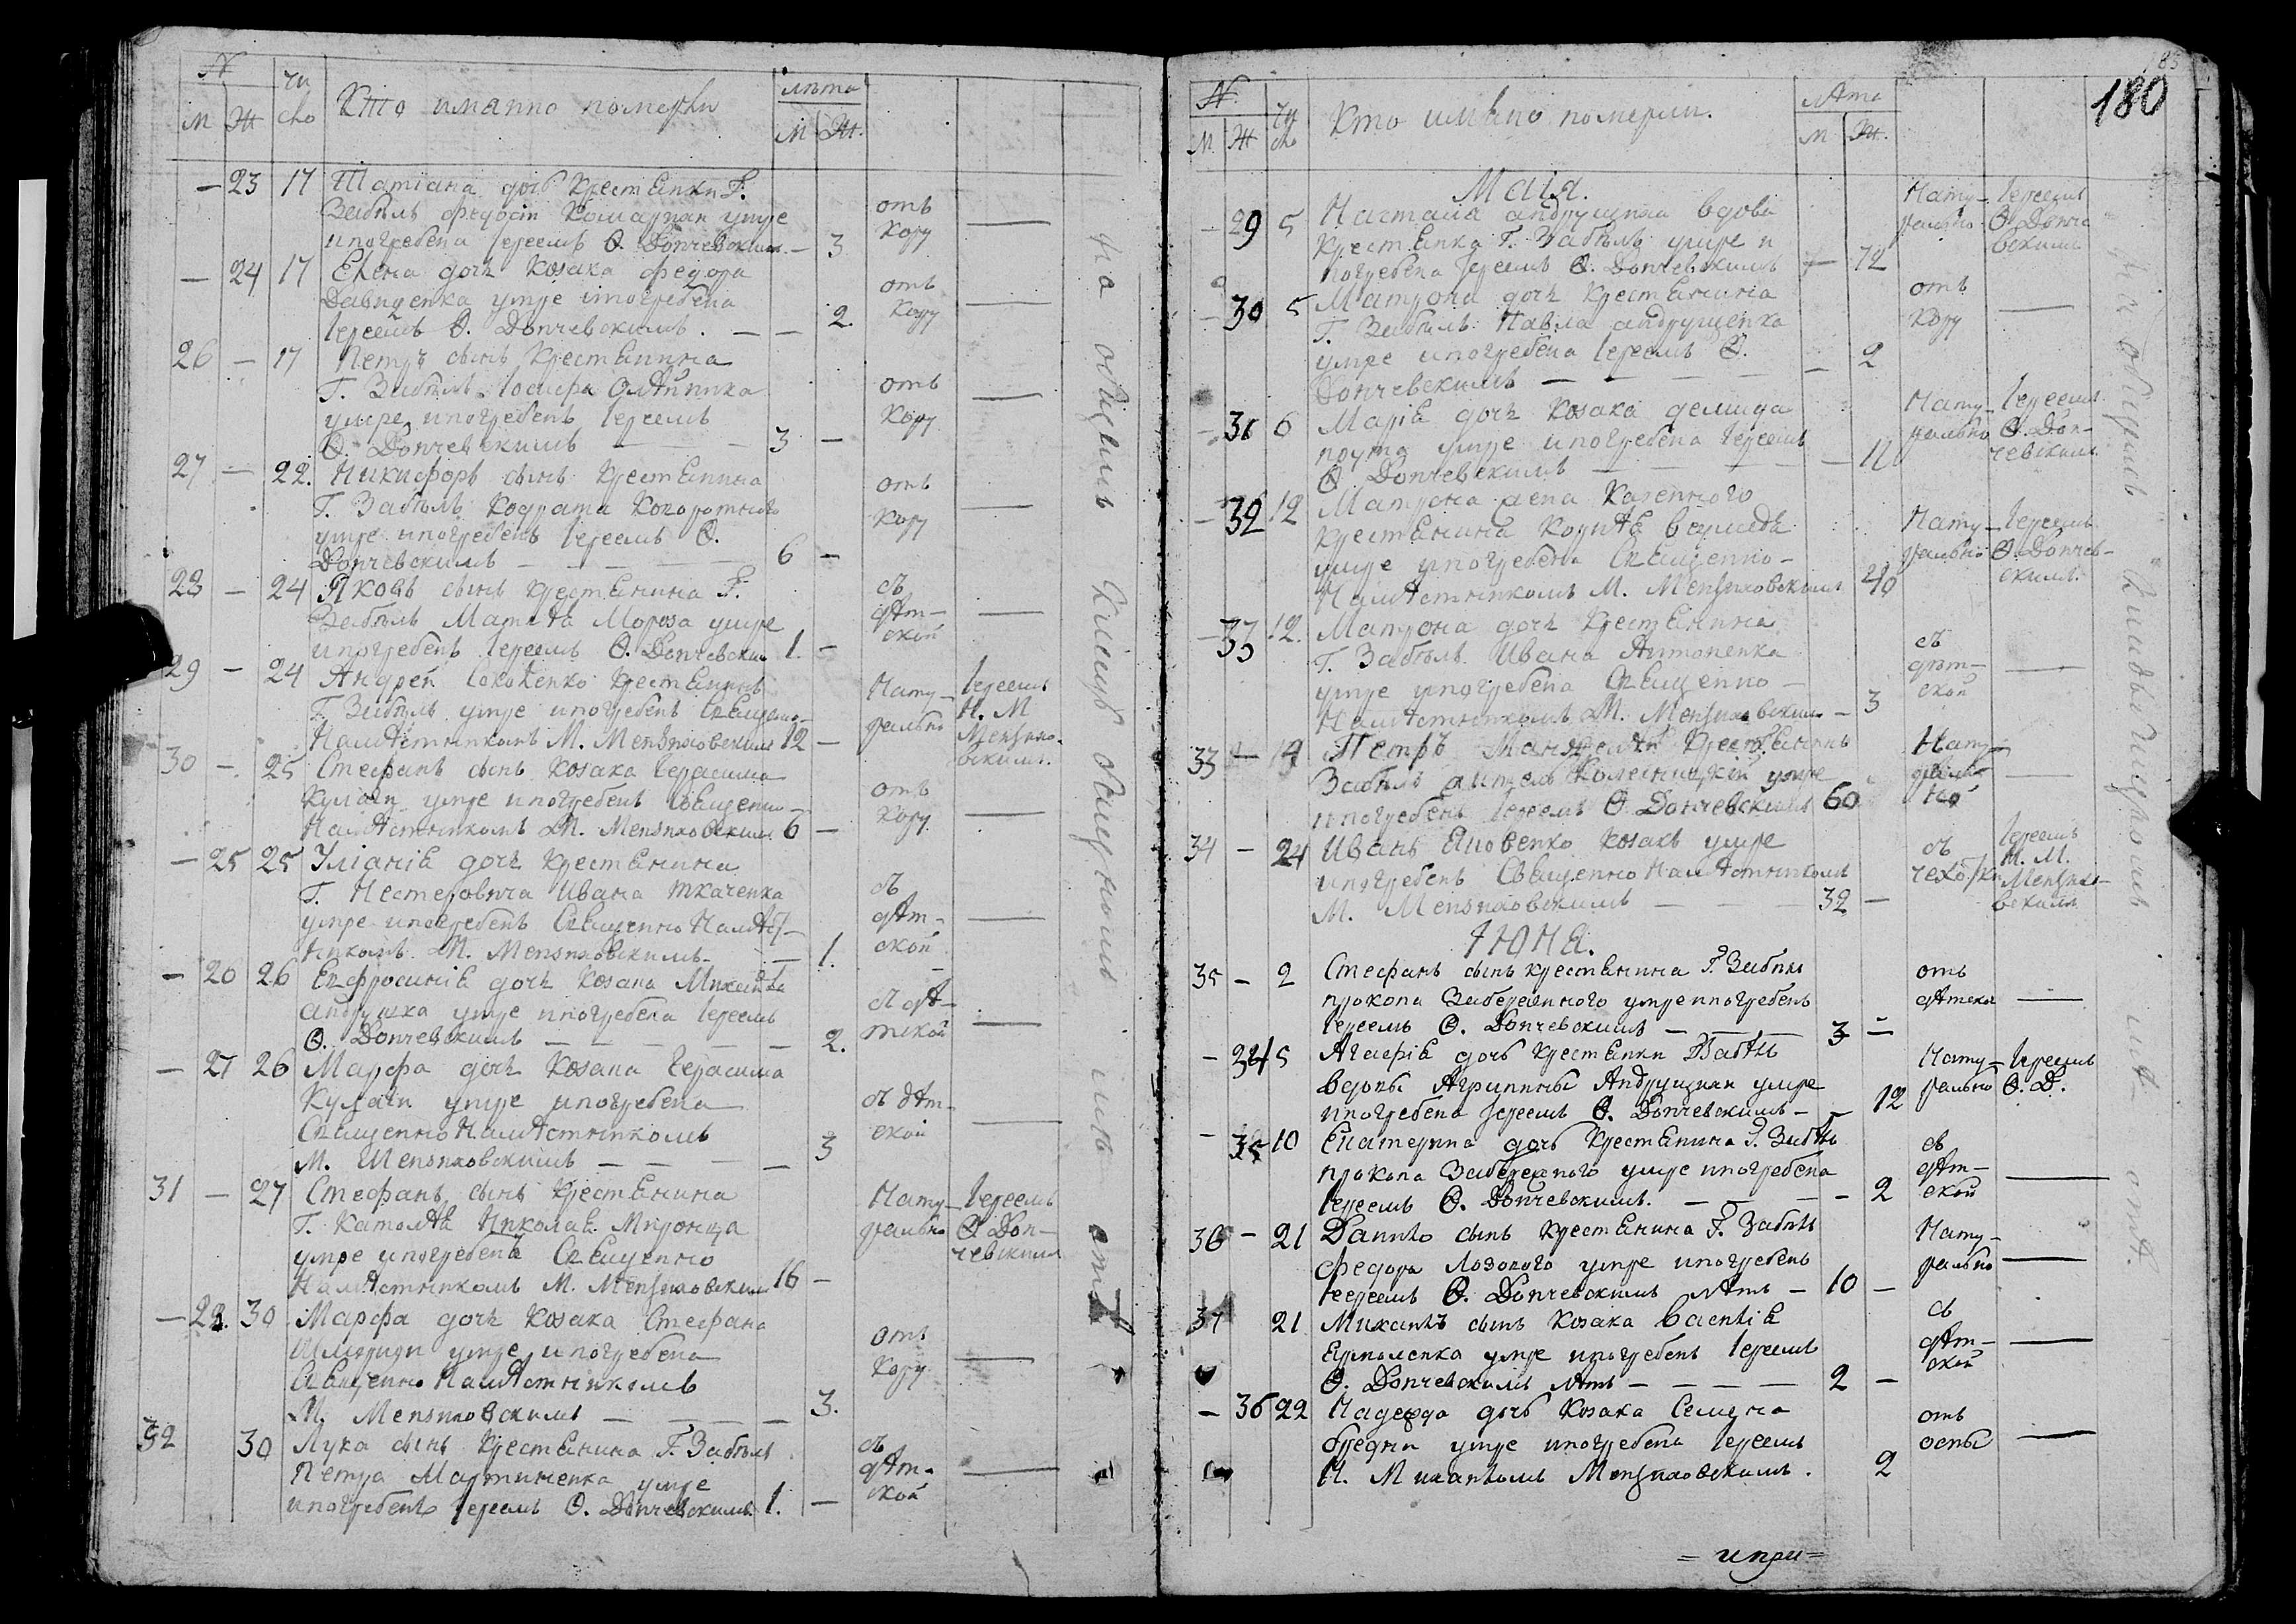 №
чи
сло
Кто иманно померли
лѣта
М Ж
М Ж.
— 23 17 Татіана дочь Крестянки Г.
Забѣлъ Федосіи Комарнки умре
и погребена Іереемъ Ѳ. Дончевскимъ — 3
отъ
Кору
— 24 17 Елена дочь Козака Федора
Давиденка умре и погребена
Іереемъ Ѳ. Дончевскимъ. — — 2.
отъ
Кору
26 — 17 Петръ сынъ Крестянина
Г. Забѣлъ Іосифа Олѣйника
умре и погребенъ Іереемъ
Ѳ. Дончевскимъ — 3 —
отъ
Кору
27 — 22. Никифоръ сынъ Крестянина
Г. Забѣлъ Кодрата Коротного
умре и погребенъ Іереемъ Ѳ.
Дончевскимъ — 6 —
отъ
Кору
28 — 24 Яковъ сынъ Крестянина Г.
Забѣлъ Матвѣя Мороза умре
и погребенъ Іереемъ Ѳ. Дончевским 1. —
съ
дѣт—
ской
29 — 24 Андрей Крестянинъ
Г. Забѣлъ умре и погребенъ Священно—
Намѣстникомъ М. Мензиховскимъ 12 —
Нату—
рально
Іереемъ
Н. М
Мензихо-
вскимъ.
30 — 25 Стефанъ сынъ Козака Герасима
Кулаги умре и погребенъ Священно—
Намѣстникомъ М. Мензиховскимъ 6 —
отъ
Кору
— 25 25 Уліанія дочь Крестянина
Г. Нестеровича Ивана Ткаченка
умре и погребенъ Священно Намѣст—
никомъ М. Мензиховскимъ — 1.
съ
дѣт—
ской
— 26 26 Евфросинія дочь Козака Михайла
Андрушка умре и погребена Іереемъ
Ѳ. Дончевскимъ — 2.
съ дѣ—
тской
— 27 26 Марфа дочь Козака Герасима
Кулаги умре и погребена
Священно Намѣстникомъ
М. Мензиховскимъ — 3
съ дѣт—
ской
31 — 27 Стефанъ сынъ Крестянина
Г. Николая Миронца
умре и погребенъ Священно
Намѣстникомъ М. Мензиховскимъ 16 —
Нату—
рально
Іереемъ
Ѳ. Дон—
чевскимъ
— 28. 30 Марфа дочь Козака Стефана
умре и погребена
Священно Намѣстникомъ
М. Мензиховскимъ — 3.
отъ
Кору
32 30 Лука сынъ Крестянина Г. Забѣлъ
Петра Мартиненка умре
и погребенъ Іереемъ Ѳ. Дончевскимъ 1. —
съ
дѣт-
ской
на общемъ
180
№
чи
сло
Кто имяно померли.
лѣта
М Ж
М Ж.
Маія.
— 29 5 Наталія Андрущиха вдова
Крестянка Г. Забѣлъ умре и
погребена Іереемъ Ѳ. Дончевскимъ — 72
Нату—
рально
Іереемъ
Ѳ. Донче
вскимъ
— 30 5 Матрона дочь Крестянина
Г. Забѣлъ Павла Андрущенка
умре и погребена Іереемъ Ѳ.
Дончевскимъ — 2
отъ
Кору
— 31 6 Марія дочь Козака Демида
умре и погребена Іереемъ
Ѳ Дончевскимъ —
Нату—
рально
Іереемъ
Ѳ. Дон-
чевскимъ
— 32 12 Матрона жена Казенного
Крестянина
умре и погребена Священно—
Намѣстникомъ М. Мензиховскимъ 40
Нату—
рально
Іереемъ
Ѳ. Дончев-
скимъ.
— 33 12. Матрона дочь Крестянина
Г. Забѣлъ Ивана Антоненка
умре и погребена Священно—
Намѣстникомъ М. Мензиховским — 3
съ
дѣт—
ской
33 — Петръ Крестянинъ
Забѣлъ умре
и погребенъ Іереемъ Ѳ. Дончевскимъ 60
Нату—
34 — 24 Иванъ Яновенко Козакъ умре
и погребенъ Священно Намѣстникомъ
М. Мензиховскимъ — 32 —
Іереемъ
Н. М.
Мензихо-
вскимъ
Іюня.
35 — 2 Стефанъ сынъ Крестянина Г. Забѣлъ
Прокопа Забережного умре и погребенъ
Іереемъ Ѳ. Дончевскимъ — 3 —
отъ
дѣтской
— 34 5 Агафія дочь Крестянки Забѣлъ
вдовы Агрипины Андрущихи умре
и погребена Іереемъ Ѳ. Дончевскимъ — 12
Нату—
рально
Іереемъ
Ѳ. Д.
— 35 10 Екатерина дочь Крестянина Г. Забѣлъ
Прокопа Забережного умре и погребена
Іереемъ Ѳ. Дончевскимъ. — 2
съ
дѣт—
ской
36 — 21 Данило сынъ Крестянина Г. Забѣлъ
Федора Лозового умре и погребенъ
Іереемъ Ѳ. Дончевскимъ лѣтъ — 10 —
Нату—
рально
37 21 Михаилъ сынъ Козака Василія
Ермоленка умре и погребенъ Іереемъ
Ѳ. Дончевскимъ лѣтъ — 2 —
съ
дѣт—
ской
— 36 22 Надежда дочь Козака Семена
умре и погребена Іереемъ
Н. Михаиломъ Мензиховскимъ. 2
отъ
оспы
= и при =